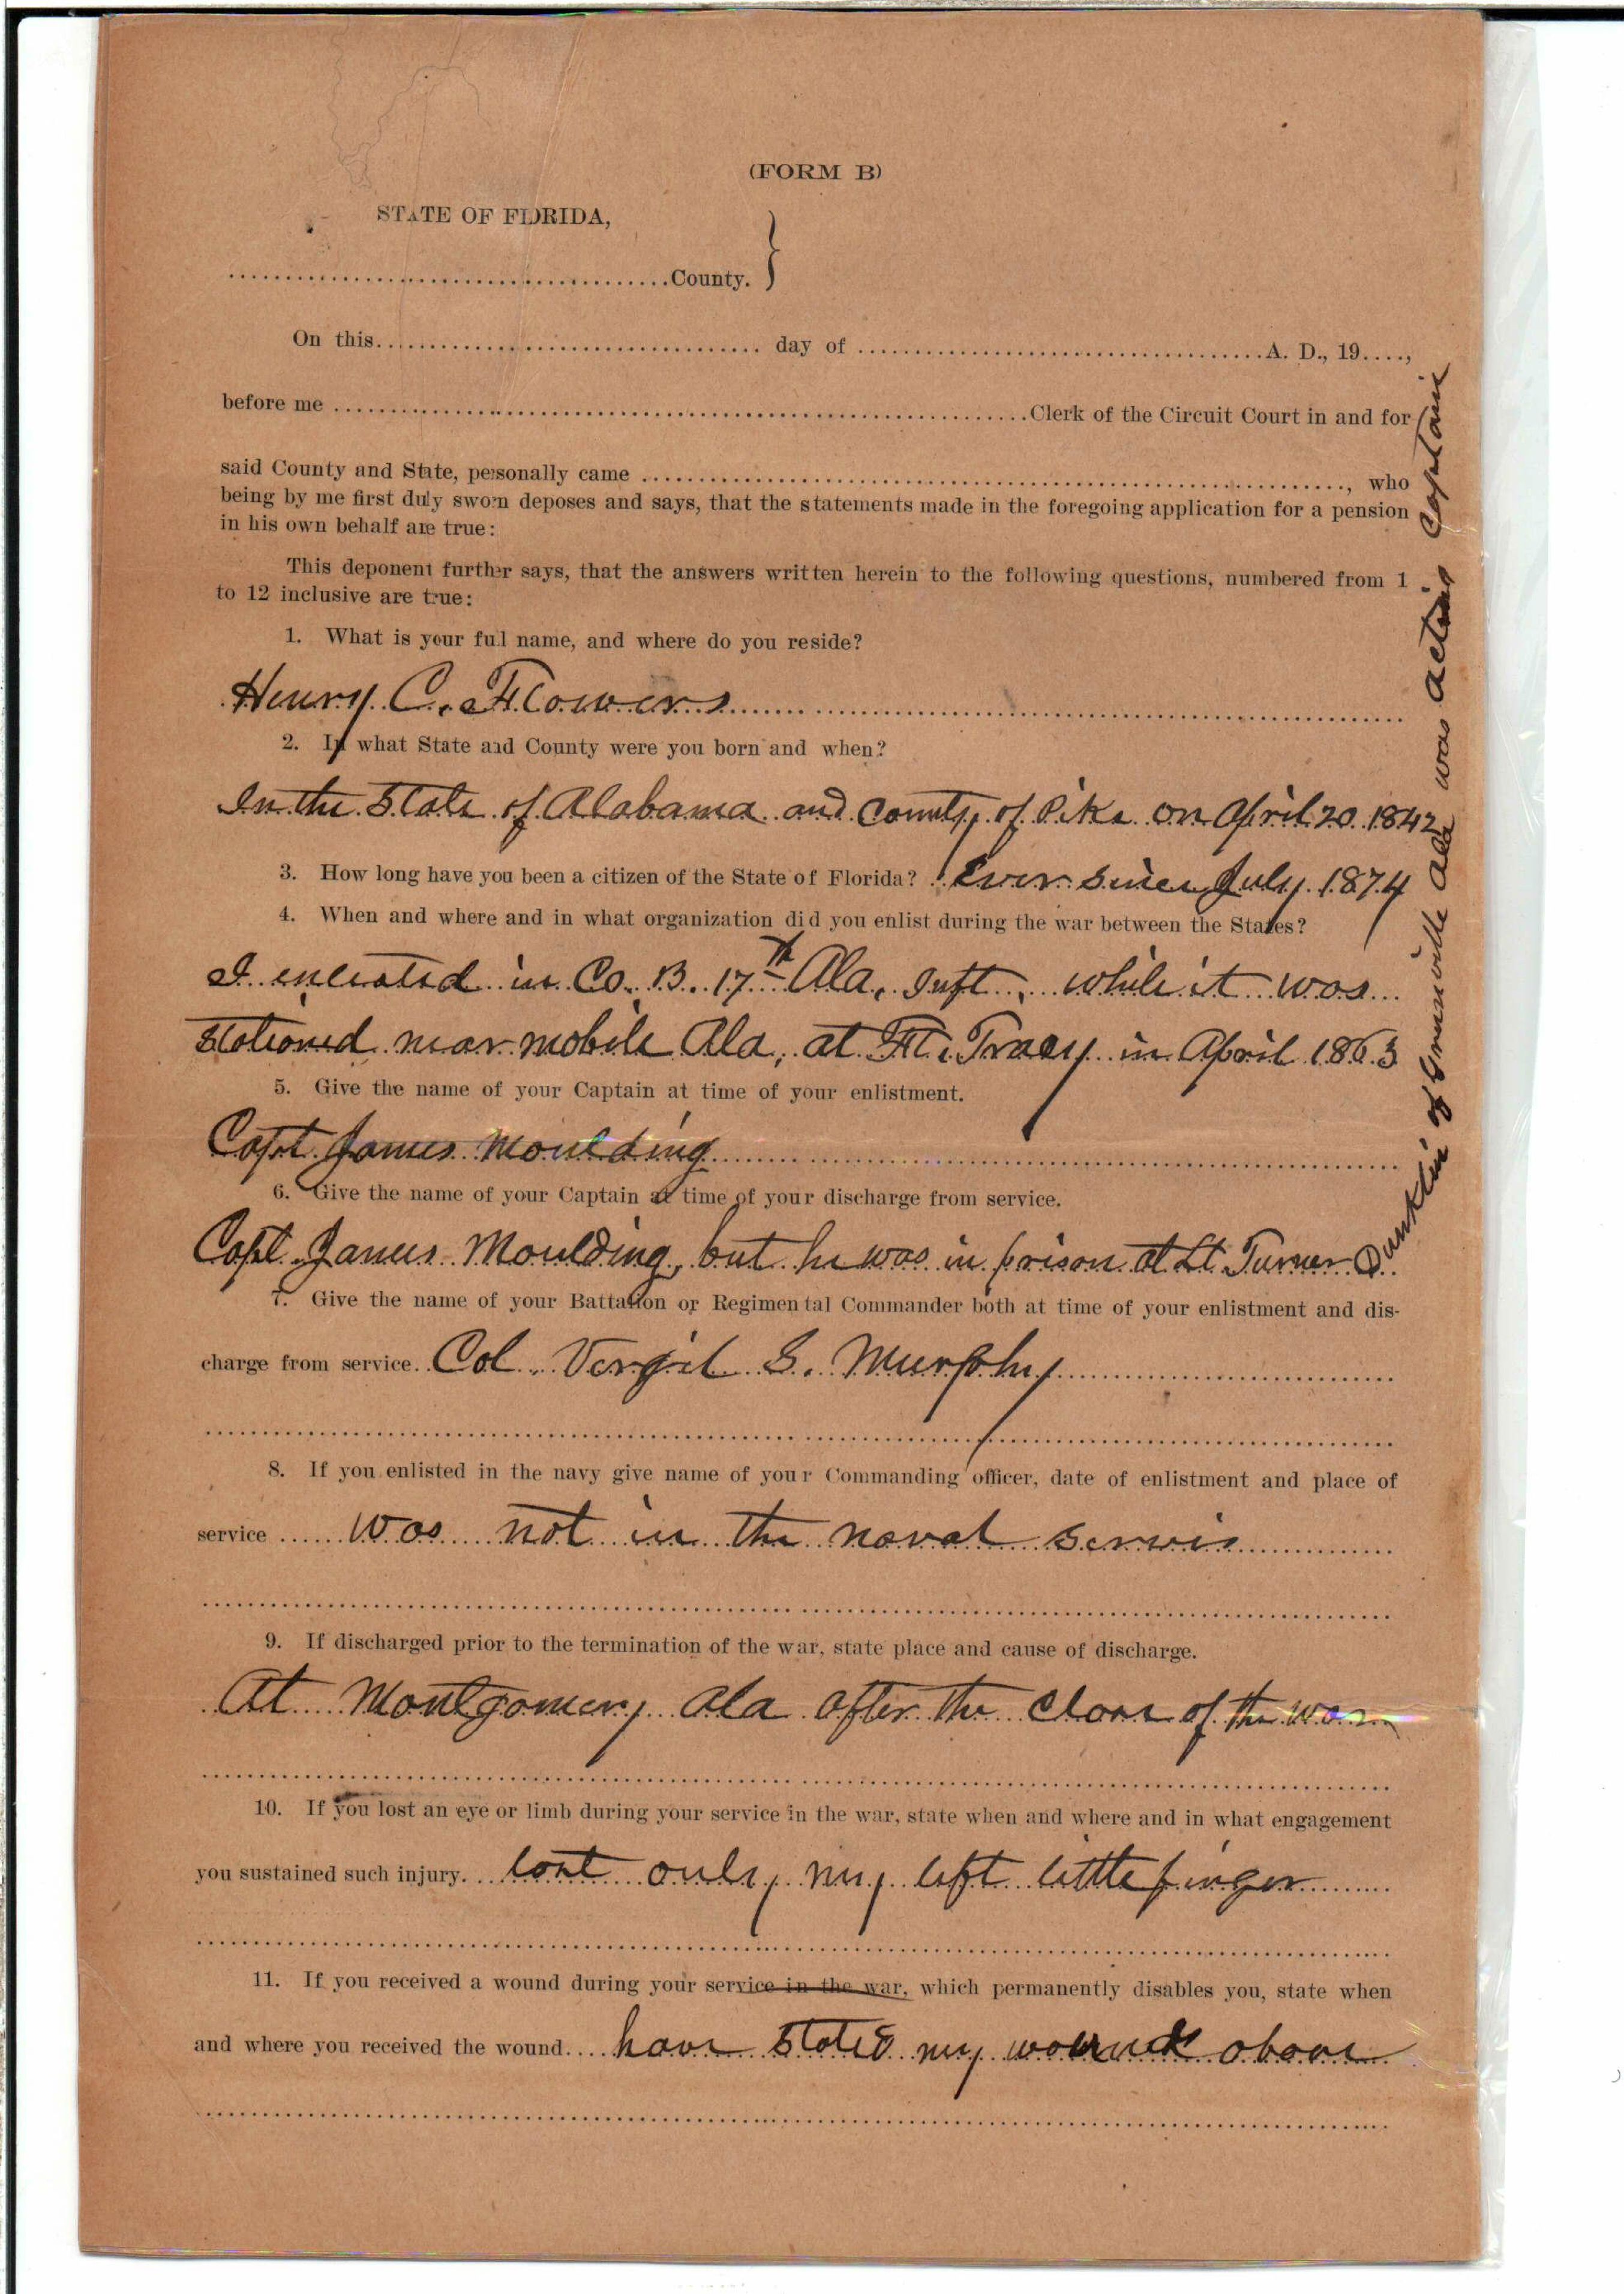 (FORM B)
STATE OF FLORIDA,
........................................County. }
On this.................................... day of ....................................A. D., 19....,
before me ................................................................Clerk of the Circuit Court in and for
said County and State, personally came ................................................................, who
being by me first duly sworn deposes and says, that the statements made in the foregoing application for a pension
in his own behalf are true:
This deponent further says, that the answers written herein to the following questions, numbered from 1
to 12 inclusive are true:
1. What is your full name, and where do you reside?
Henry C. Flowers
2. In what State and County were you born and when?
In the State of Alabama and County of Pike on April 20 1842
3. How long have you been a citizen of the State of Florida? Ever since July 1874
4. When and where and in what organization did you enlist during the war between the States?
I enlisted in Co. B. 17th Ala. Inft, while it was
stationed near mobile Ala, at Ft. Tracy in April 1863
5. Give the name of your Captain at time of your enlistment.
Capt James Moulding
6. Give the name of your Captain at time of your discharge from service.
Capt James Moulding, but he was in prison at Lt Turner Dunklin of Greenville Ala was acting Captain
7. Give the name of your Battalion or Regimental Commander both at time of your enlistment and dis-
charge from service. Col. Vergil S. Murphy
8. If you enlisted in the navy give name of your Commanding officer, date of enlistment and place of
service was not in the naval servis
9. If discharged prior to the termination of the war, state place and cause of discharge.
At Montgomery Ala after the close of the war
10. If you lost an eye or limb during your service in the war, state when and where and in what engagement
you sustained such injury. lost only my left little finger
11. If you received a wound during your service in the war, which permanently disables you, state when
and where you received the wound.... have stated my wound above